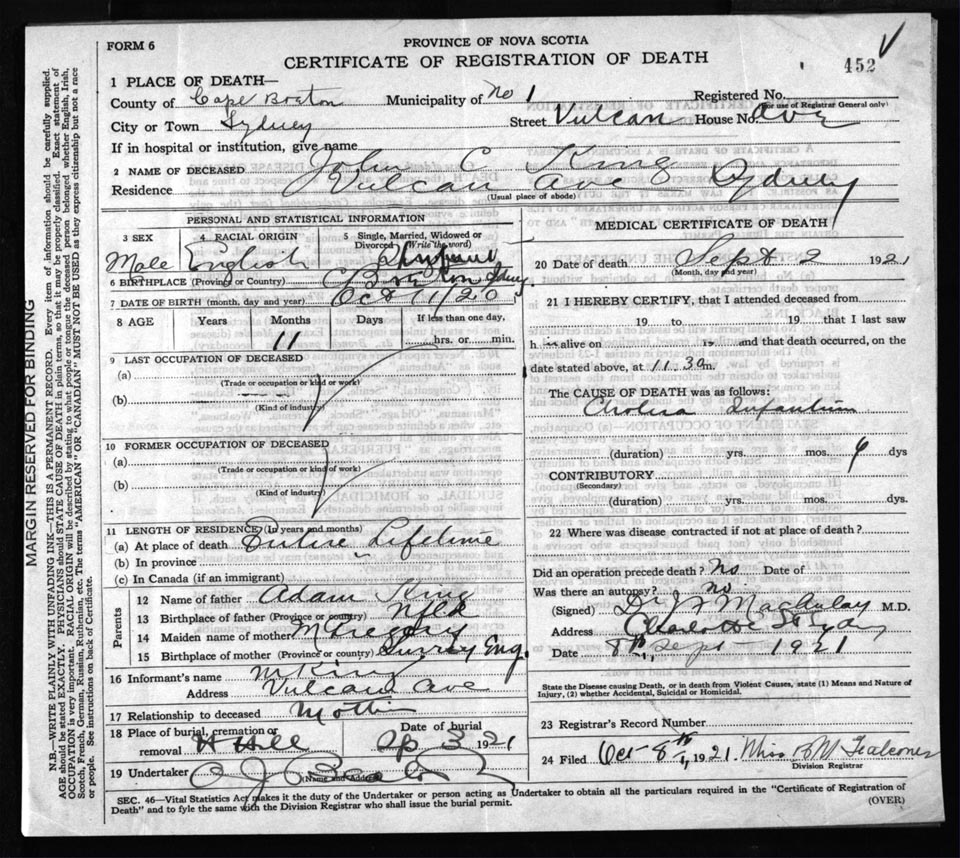 FORM 6
PROVINCE OF NOVA SCOTIA
CERTIFICATE OF REGISTRATION OF DEATH
452
1 PLACE OF DEATH—
County of Cape Breton Municipality of No 1 Registered No.
(For use of Registrar General only)
City or Town Sydney Street Vulcan House No. Ave
If in hospital or institution, give name
2 NAME OF DECEASED John C King
Residence Vulcan Ave Sydney
(Usual place of abode)
PERSONAL AND STATISTICAL INFORMATION
3 SEX 4 RACIAL ORIGIN 5 Single, Married, Widowed or Divorced (Write the word)
Male English
6 BIRTHPLACE (Province or Country) Sydney
7 DATE OF BIRTH (month, day and year) Oct 11/20
8 AGE Years Months Days If less than one day,
11 hrs. or min.
9 LAST OCCUPATION OF DECEASED
(a)
(Trade or occupation or kind or work)
(b)
(Kind of industry)
10 FORMER OCCUPATION OF DECEASED
(a)
(Trade or occupation or kind of work)
(b)
(Kind of industry)
11 LENGTH OF RESIDENCE (In years and months)
(a) At place of death Entire Lifetime
(b) In province
(c) In Canada (if an immigrant)
Parents
12 Name of father Adam King
13 Birthplace of father (Province or country) Nfld
14 Maiden name of mother M Gregory
15 Birthplace of mother (Province or country) Surrey Eng.
16 Informant's name M King
Address Vulcan Ave
17 Relationship to deceased Mother
18 Place of burial, cremation or removal H Hill Date of burial 3 1921
19 Undertaker
(Name and Address)
MEDICAL CERTIFICATE OF DEATH
20 Date of death Sept 2 1921
(Month, day and year)
21 I HEREBY CERTIFY, that I attended deceased from
19 to 19 that I last saw
h alive on 19 and that death occurred, on the
date stated above, at 11.30 m.
The CAUSE OF DEATH was as follows:
Cholera Infantum
(duration) yrs. mos. dys
CONTRIBUTORY
(Secondary)
(duration) yrs. mos. dys.
22 Where was disease contracted if not at place of death?
Did an operation precede death? No Date of
Was there an autopsy? no
(Signed) Dr J J MacAulay M.D.
Address Charlotte St Sydney
Date 8th Sept 1921
State the Disease causing Death, or in death from Violent Causes, state (1) Means and Nature of Injury, (2) whether Accidental, Suicidal or Homicidal.
23 Registrar's Record Number
24 Filed Oct 8th, 1921. Miss B M Falconer
Division Registrar
SEC. 46—Vital Statistics Act makes it the duty of the Undertaker or person acting as Undertaker to obtain all the particulars required in the "Certificate of Registration of
Death" and to fyle the same with the Division Registrar who shall issue the burial permit.
(OVER)
MARGIN RESERVED FOR BINDING
N.B.—WRITE PLAINLY WITH UNFADING INK—THIS IS A PERMANENT RECORD. Every item of information should be carefully supplied.
AGE should be stated EXACTLY. PHYSICIANS should STATE CAUSE OF DEATH in plain terms, so that it may be properly classified. Exact statement of
OCCUPATION is very important. RACIAL ORIGIN will be described by stating to what people or tongue the deceased person belonged whether English, Irish,
Scotch, French, German, Russian, Ruthenian, etc. The terms "AMERICAN" OR "CANADIAN" MUST NOT BE USED as they express citizenship but not a race
or people. See instructions on back of Certificate.